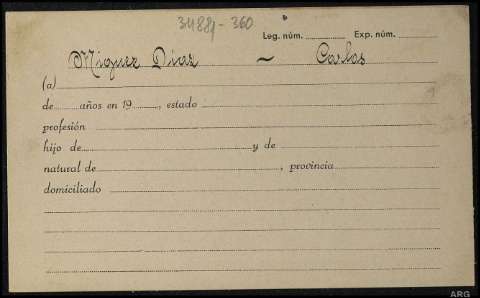 34884-360
Leg. núm. Exp. núm.
Miguez Diaz - Carlos
(a)
de años en 19, estado
profesión
hijo de y de
natural de, provincia
domiciliado
ARG